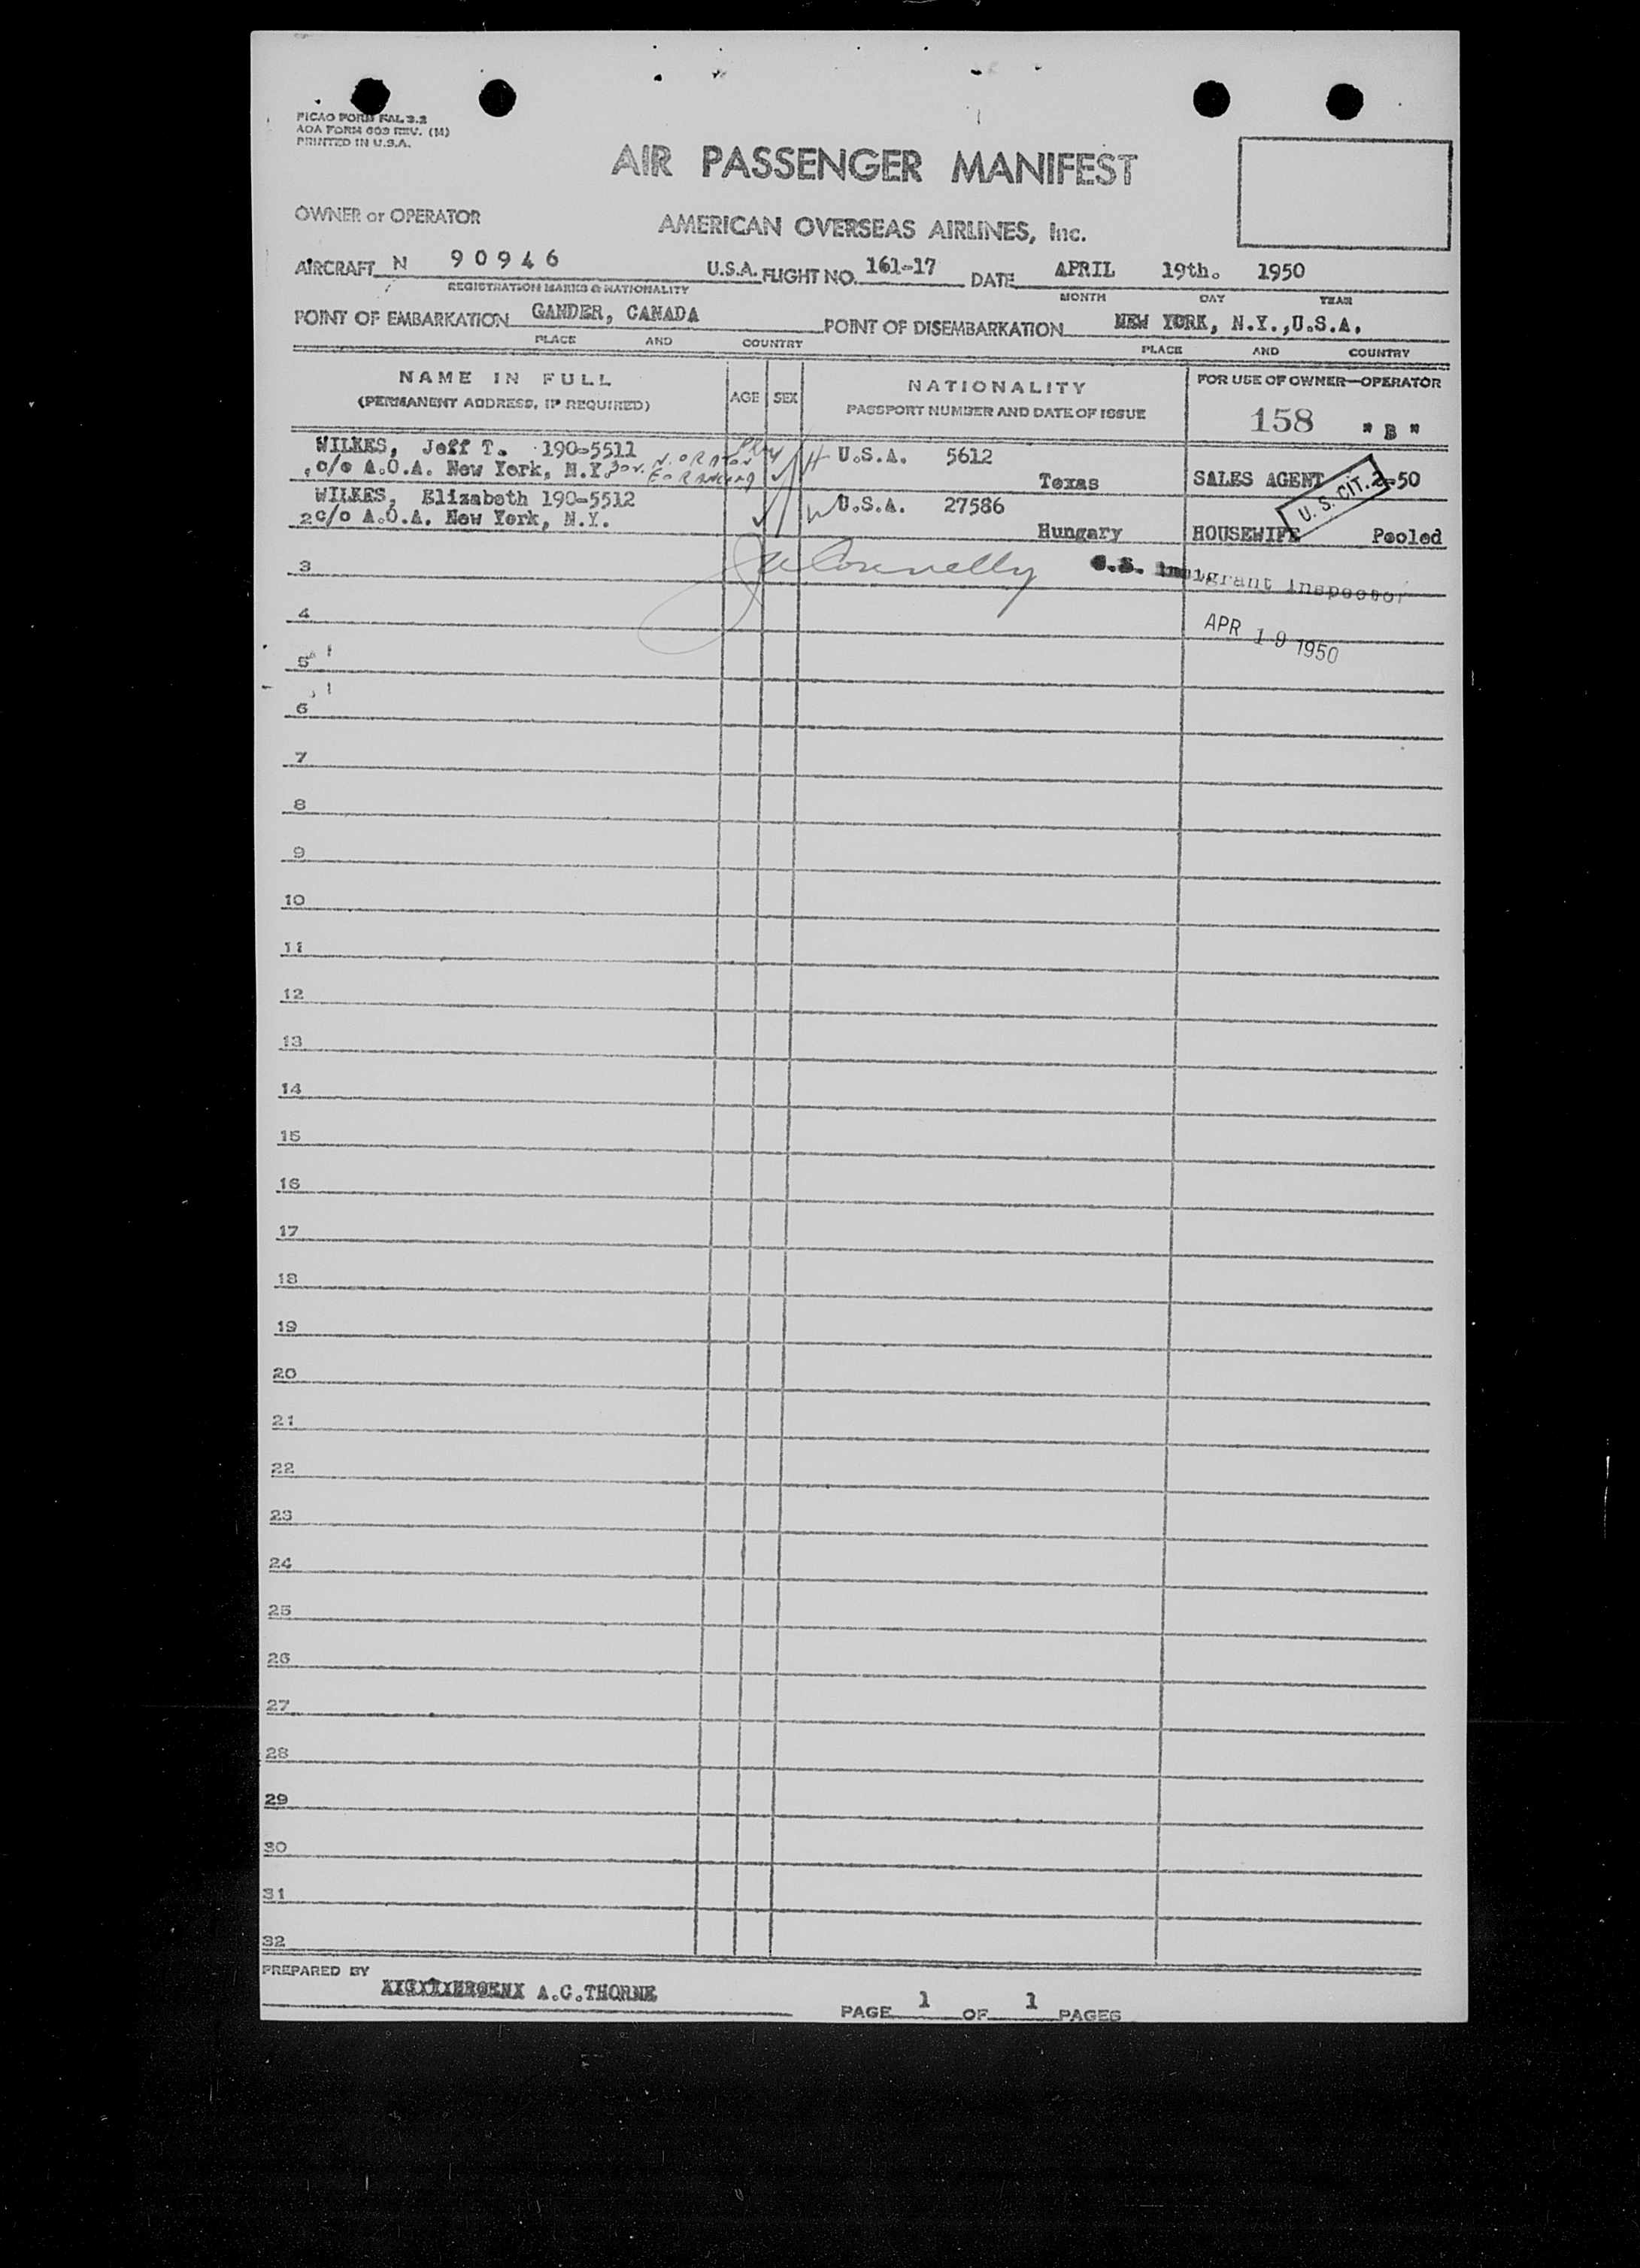 PICAO FORM FAL 3.2
AOA FORM 603 REV. (M)
PRINTED IN U.S.A.
AIR PASSENGER MANIFEST
OWNER or OPERATOR
AMERICAN OVERSEAS AIRLINES, Inc.
AIRCRAFT N 90946 U.S.A. FLIGHT NO. 161-17 DATE APRIL 19th. 1950
REGISTRATION MARKS & NATIONALITY MONTH DAY YEAR
POINT OF EMBARKATION GANDER, CANADA POINT OF DISEMBARKATION NEW YORK, N.Y.,U.S.A.
PLACE AND COUNTRY PLACE AND COUNTRY
NAME IN FULL AGE SEX NATIONALITY FOR USE OF OWNER—OPERATOR
(PERMANENT ADDRESS, IF REQUIRED) PASSPORT NUMBER AND DATE OF ISSUE 158 " B "
WILKES, Jeff T. 190-5511 H U.S.A. 5612
c/o A.O.A. New York, N.Y. Texas SALES AGENT 2-50
U. S. CIT.
WILKES, Elizabeth 190-5512 W U.S.A. 27586
2 c/o A.O.A. New York, N.Y. Hungary HOUSEWIFE Pooled
3 Connelly U.S. Immigrant Inspector
4 APR 19 1950
5
6
7
8
9
10
11
12
13
14
15
16
17
18
19
20
21
22
23
24
25
26
27
28
29
30
31
32
PREPARED BY A.C.THORNE
PAGE 1 OF 1 PAGES